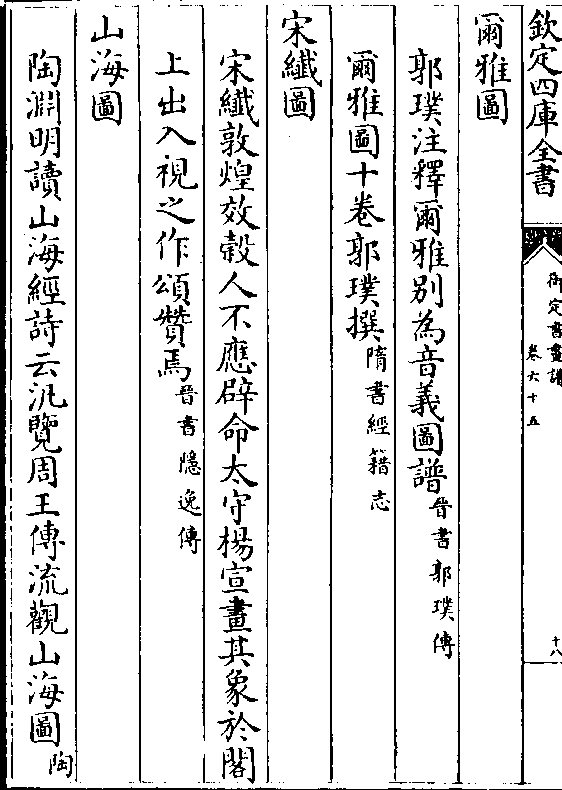 欽定四庫全書
御定書畫譜
卷六十五
十八
爾雅圖
郭璞注釋爾雅別為音義圖譜晉書郭璞傳
爾雅圖十卷郭璞撰隋書經籍志
宋纖圖
宋纖敦煌效穀人不應辟命太守楊宣畫其象於閣
上出入視之作頌贊焉晉書隱逸傳
山海圖
陶淵明讀山海經詩云汎覽周王傳流觀山海圖陶